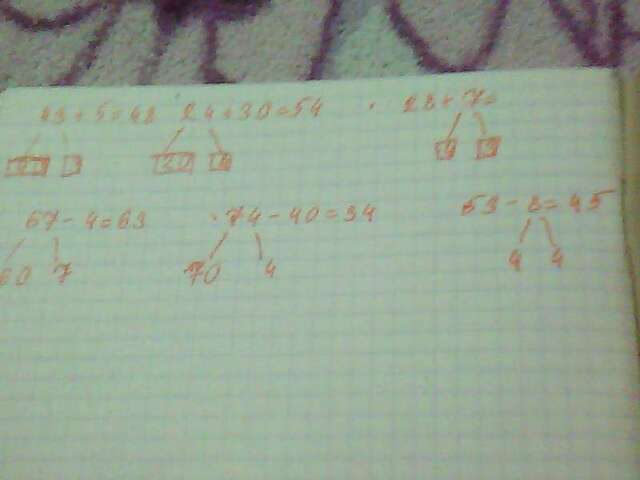 43+5=48 24+30=54 28+7=
40 3 20 4
67-4=63 74-40=34 53-8=45
60 7 70 4 4 4